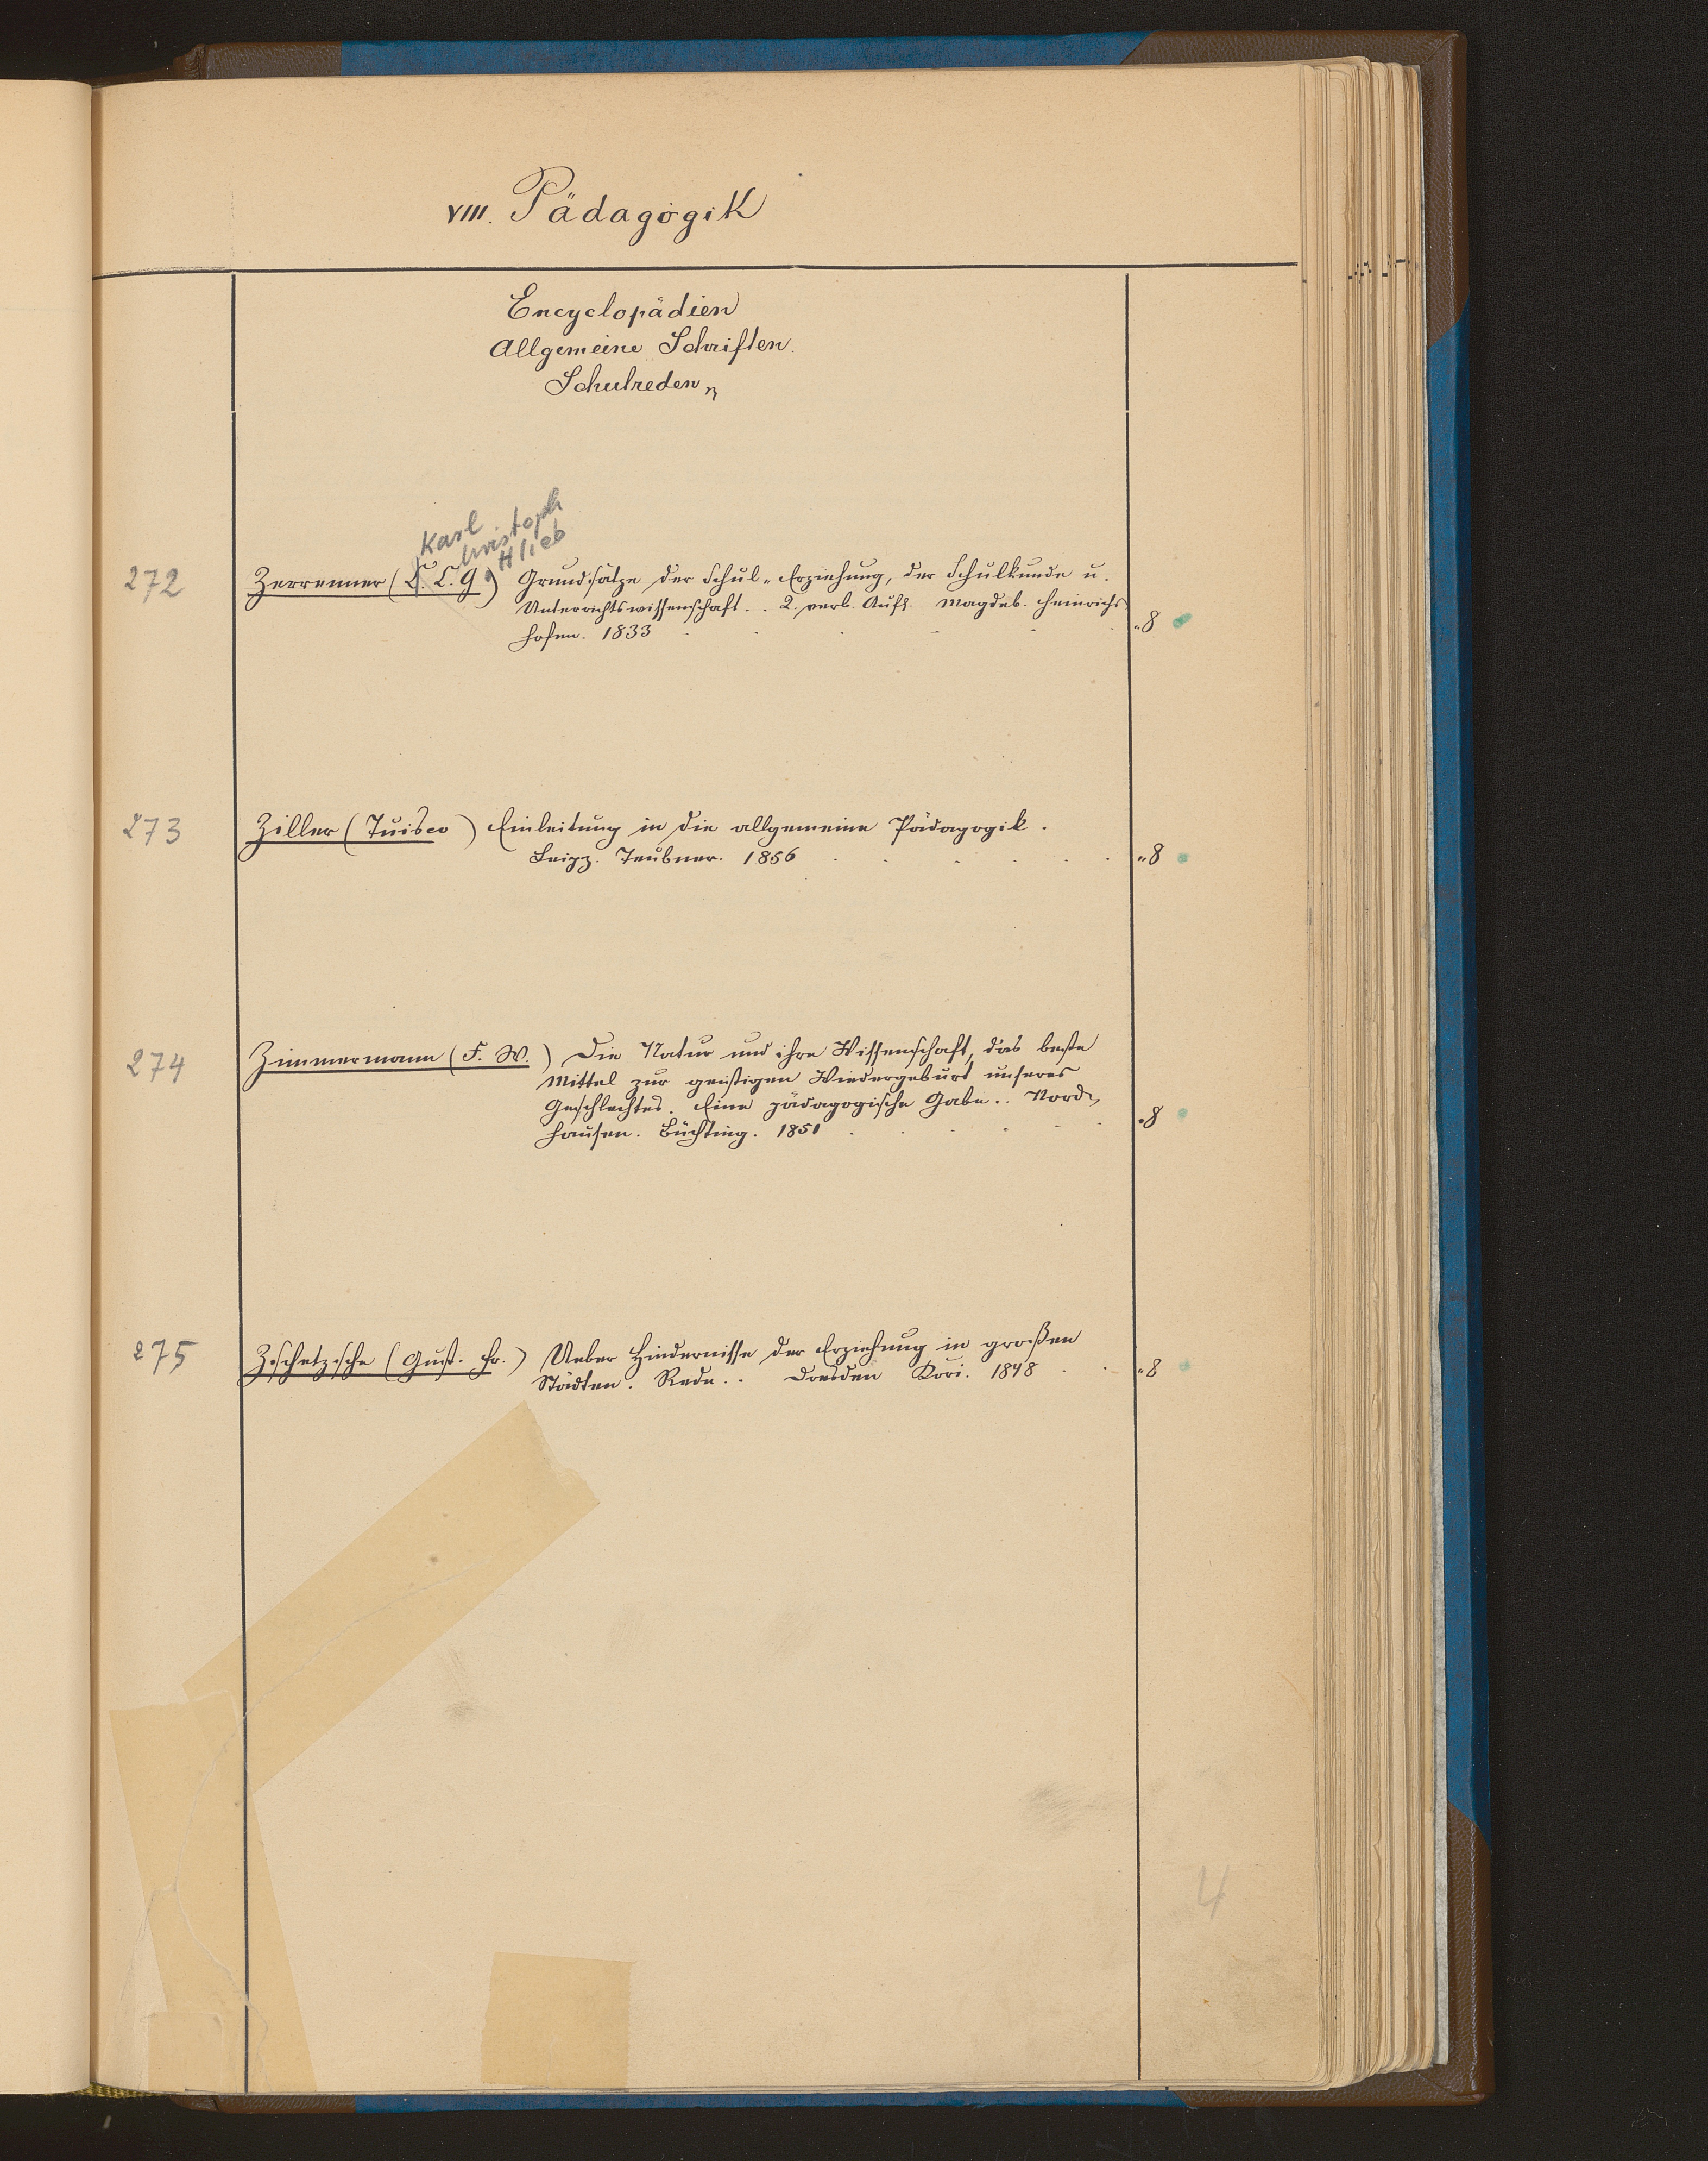 VIII. Pädagogik
Encyclopädien
Allgemeine Schriften.
Schulreden
Karl
hristoph
ottlieb
272 Zerrenner (C. C. G.) Grundsätze der Schul-Erziehung, der Schulkunde u.
Unterrichtswissenschaft. . 2. verb. Aufl. Magdeb. Heinrichs
hofen. 1833 "8
273 Ziller (Tuisco) Einleitung in die allgemeine Pädagogik.
Leipz. Teubner. 1856 "8
274 Zimmermann (F. W.) Die Natur und ihre Wissenschaft, das beste
Mittel zur geistigen Wiedergeburt unseres
Geschlechtes. Eine pädagogische Gabe. . Nord-
hausen. Büchting. 1851 "8
275 Zschetzsche (Gust. Fr.) Ueber Hindernisse der Erziehung in großen
Städten. Rede. . Dresden Kori. 1848 "8
4